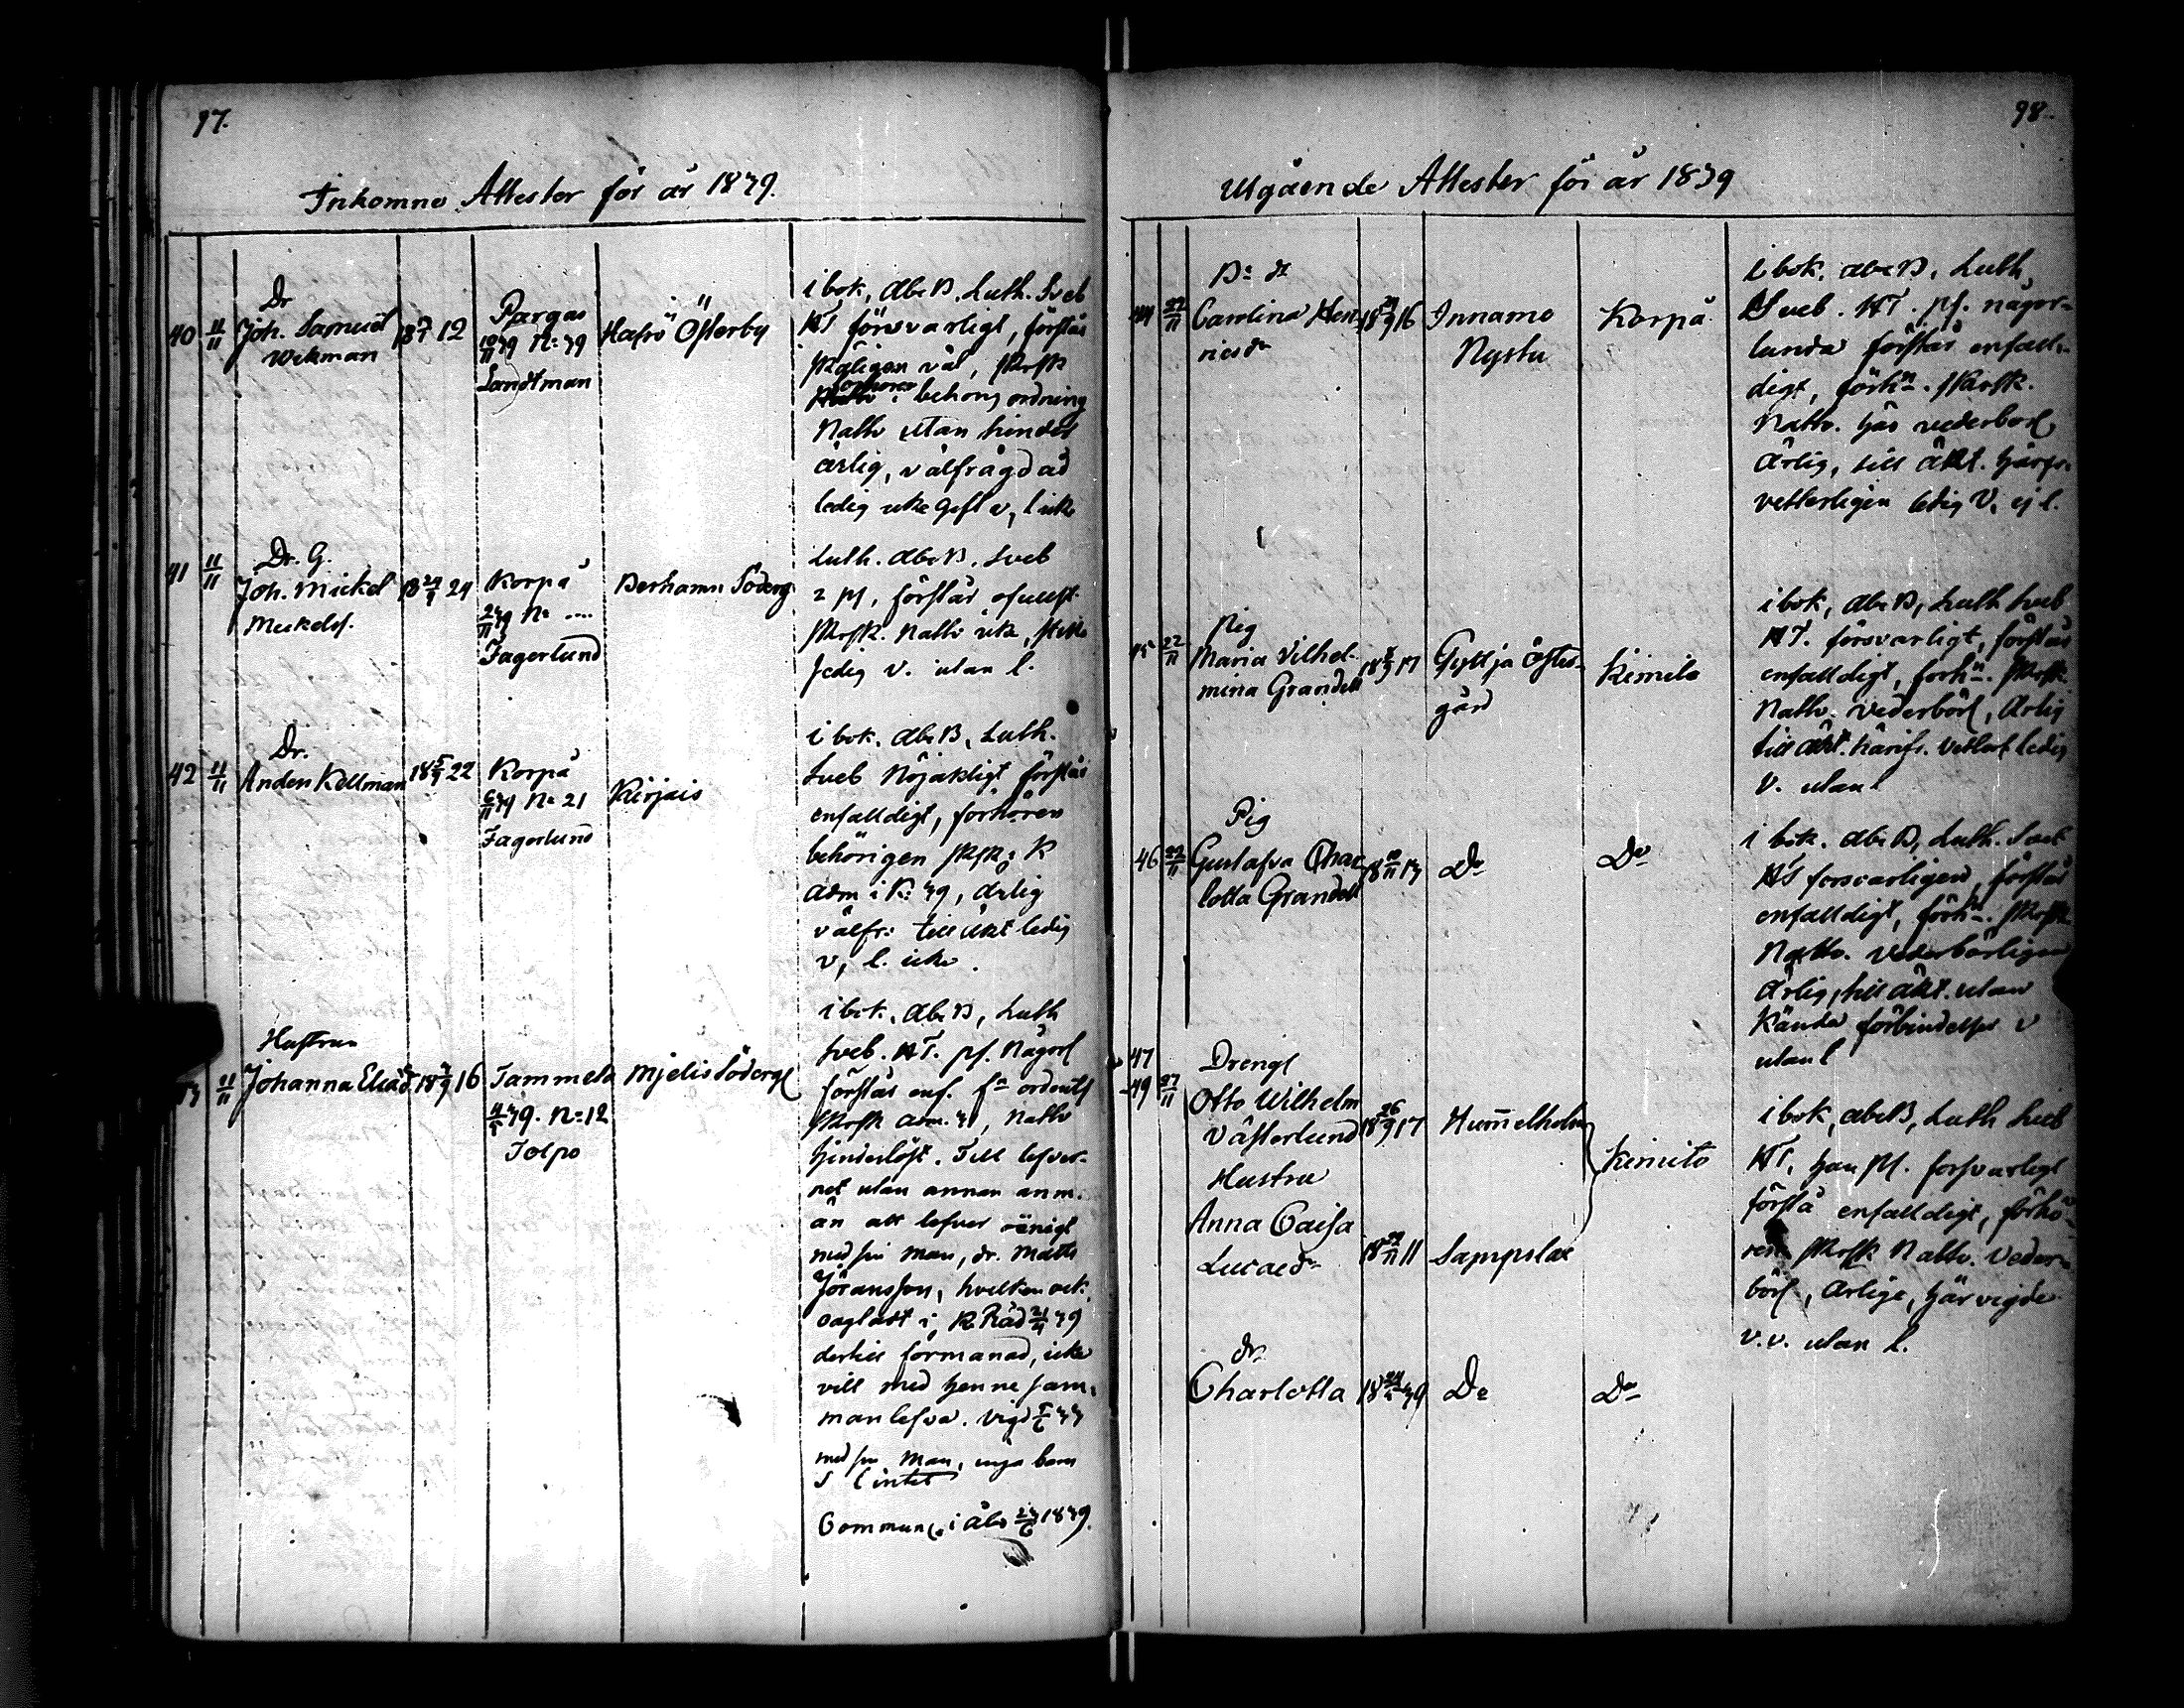 97.
Inkomne Attester för år 1839.
40 11/11
Dr
Joh. Samuel
Wikman
12
Pargas
10/11 39 N:
Landtman
Hafrö Österby
i bok, Ab. B. Luth. Sveb
HT försvarligt, förstår
väl, skrsk
i behörig ordning
Nattv utan hinder
ärlig, välfrägdad
ledig icke gift v, l icke
41 11/11
Dr. G.
Joh. Mickel
Mickelss.
24
Korpå
N: ....
Fagerlund
Berhamn Söderg
Luth. Ab. B. Sveb
2 pf, förstår ofullst
skrsk. Nattv icke
ledig v. utan l.
42 11/11
Dr.
Anders Kellman
22
Korpå
6/11 39 N: 21
Fagerlund
Kirjais
i bok. Ab. B, Luth.
Sveb Nöjaktligt förstår
enfalldigt, förhören
behörigen skrsk; K
adm i K: 39, ärlig
välfr: till äkt ledig
v, l. icke.
11/11
Hustrun
Johanna Eliæd.
16
Tammela
39. N: 12
Tolpo
Mjelis Södergl
i bok. Ab. B, Luth
Sveb. HT. pf. Någorl
förstår enf. fn ordentl
skrsk adm. Nattv
hinderlöst. Till lefver-
net utan annan anm.
än att lefver oänigt
med sin man, dr. Matts
Jöransson, hvilken ock.
oaglatt i K Råd 39
dertill förmanad, icke
vill med henne sam-
manlefva. Vigd
med sin Man, inga barn
l intet
Commun. i Åbo 1839.
98.
Utgående Attester för år 1839
44 22/11
B: dr
Carolina Hen-
ricsdr
16
Innamo
Nystu
Korpå
I bok. Ab. B, Luth,
Sveb. HT. pf. någor-
lunda förstår enfall-
digt, förhn. skrsk.
Nattv. här vederborl
Ärlig, till äkt. härfr.
vetterligen ledig V. ej l.
45 22/11
Pig
Maria Vilhel-
mina Grandell
17
Gyttja Öster-
gård
Kimito
i bok, Ab. B, Luth Sveb
HT. försvarligt, förstår
enfalldigt, forhn. skrsk
Nattv. vederbörl, Ärlig
till äkt. härifr. Vetterl ledig
V. utan l
46 22/11
Pig
Gustafva Char-
lotta Grandell
Do
Do
i bok. Ab. B, Luth. Sveb
HT forsvarligen, förstår
enfalldigt, förhn. skrsk
Nattv. vederbörligen
Ärlig, till äkt. utan
kända förbindelser v
utan l
47
-49 27/11
Drengl
Otto Wilhelm
Västerlund
17
Hummelholm
Hustru
Anna Caisa
Lucaedr
11
Sappslax
Kimito
i bok, Ab. B, Luth Sveb
HT, han pf. forsvarligt
förstå enfalldigt, förhö-
ren skrsk Nattv. Veder-
börl, Ärlige, här vigde
v.v. utan l.
dr
Charlotta
Do
Do